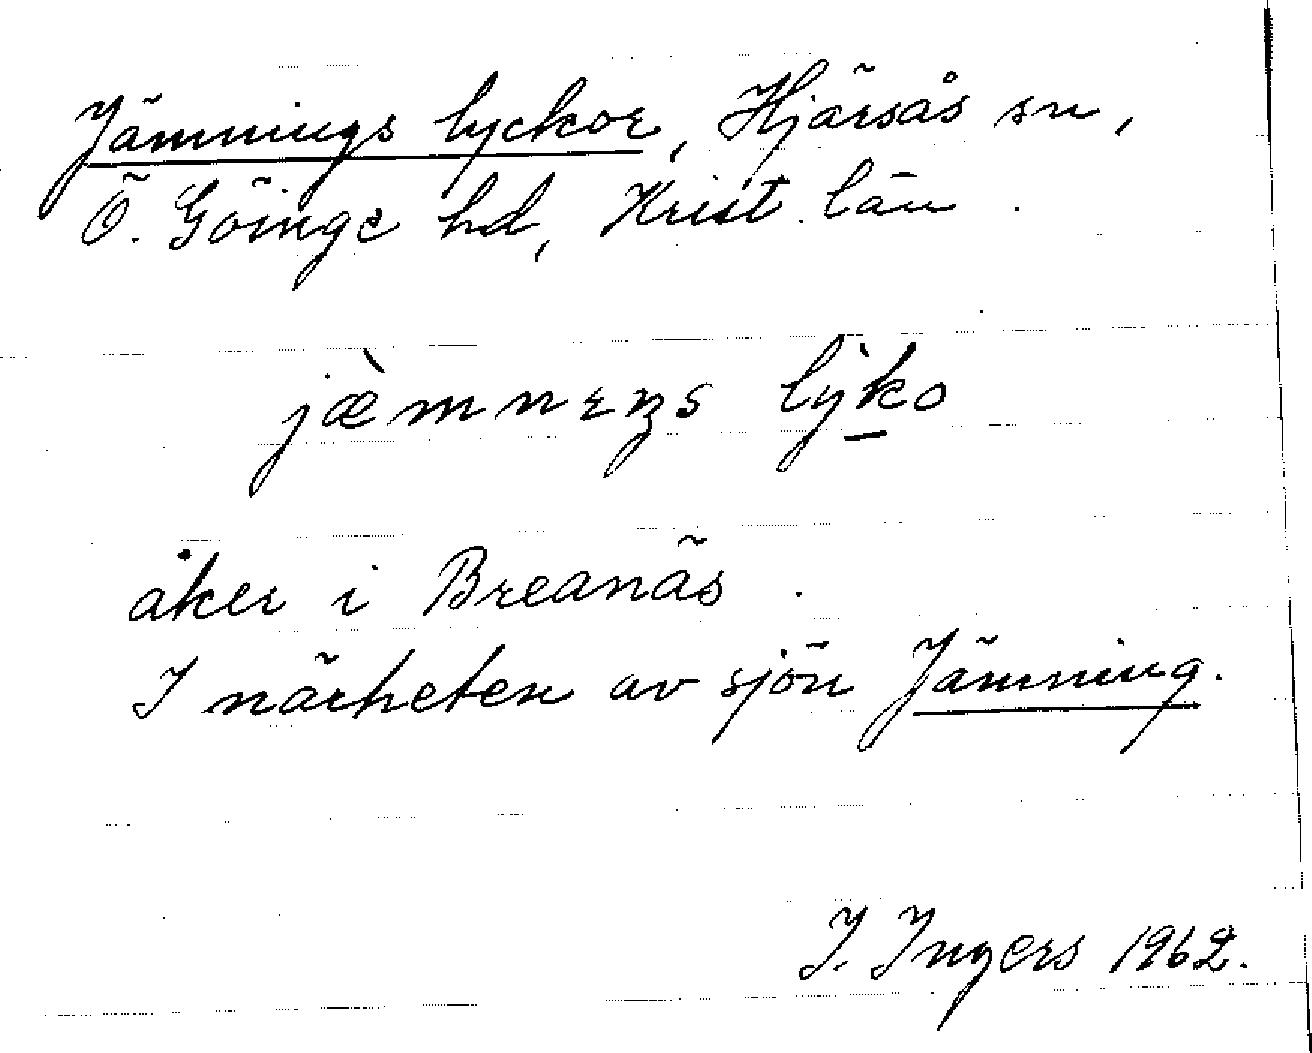 Jämnings lyckor, Hjärsås sn,
Ö. Göinge hd, Krist. län.
jæ̀mnɪŋs lỳko
åker i Breanäs.
I närheten av sjön Jämning.
I. Ingers 1962.